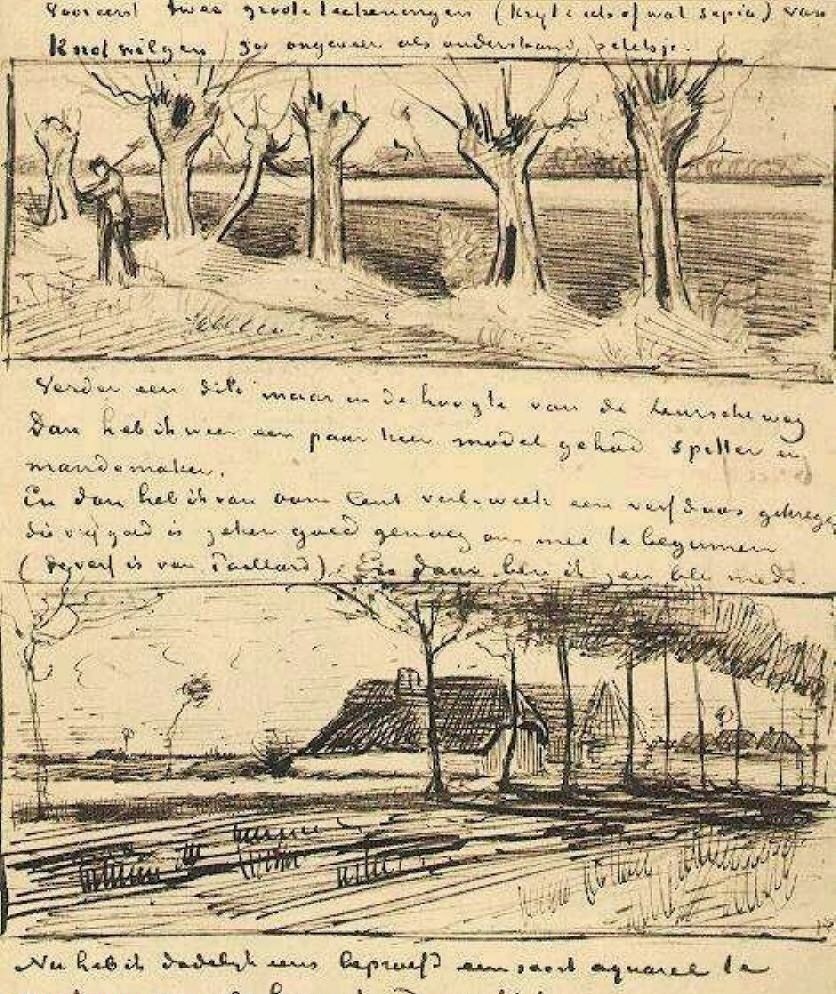 Vooreerst twee groote teekeningen (krijt & iets of wat sepia) van
Knotwilgen zoo ongeveer als onderstaand schetsje.
Verder een dito maar in de hoogte van de Leurscheweg
Dan heb ik weer een paar keer model gehad spitter en
mandemaker.
En dan heb ik van oom Cent verl. week een verfdoos gekregen
die vrij goed is zeker goed genoeg om mee te beginnen
(de verf is van Paillard). En daar ben ik zeer blij mede.
Nu heb ik dadelijk eens beproefd een soort aquarel te